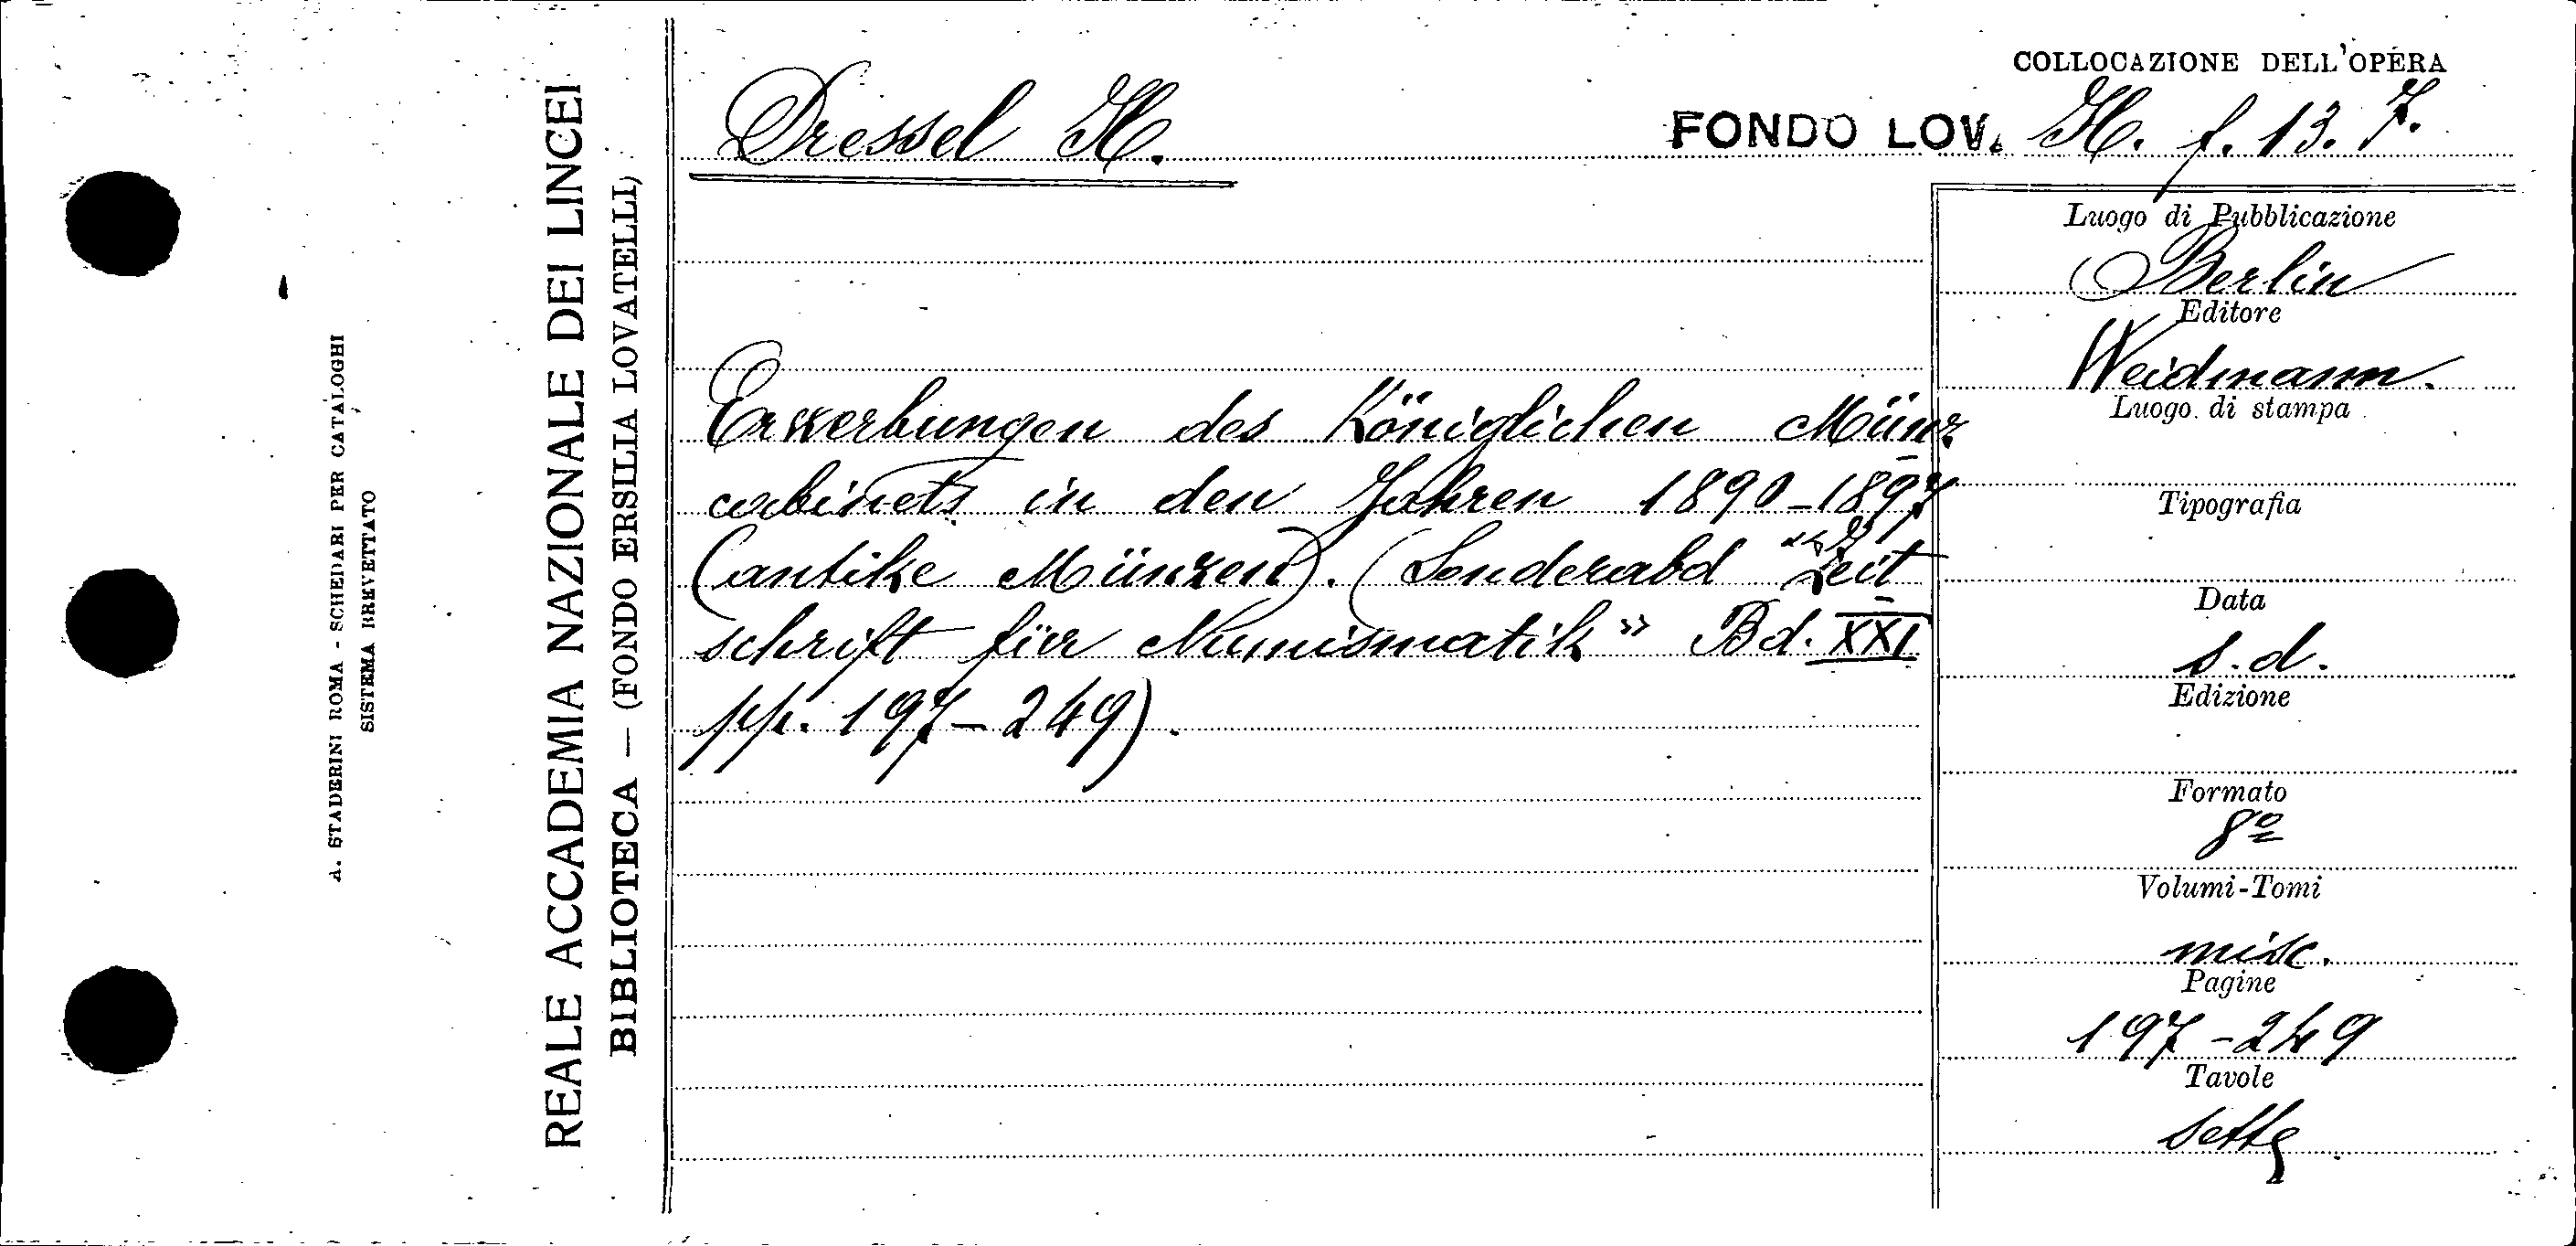 A. STADERINI ROMA - SCHEDARI PER CATALOGHI
SISTEMA BREVETTATO
REALE ACCADEMIA NAZIONALE DEI LINCEI
BIBLIOTECA — (FONDO ERSILIA LOVATELLI)
Dressel H.
COLLOCAZIONE DELL'OPERA
FONDO LOV. H. f. 13. 7.
Erwerbungen des Königlichen Münz
cabinets in den Jahren 1890-1897
(antike Münzen). (Sonderabd "Zeit
schrift für Numismatik" Bd. XXI
pp. 197-249).
Luogo di Pubblicazione
Berlin
Editore
Weidmann.
Luogo di stampa
Tipografia
Data
s.d.
Edizione
Formato
8º
Volumi-Tomi
misc.
Pagine
197-249
Tavole
sette